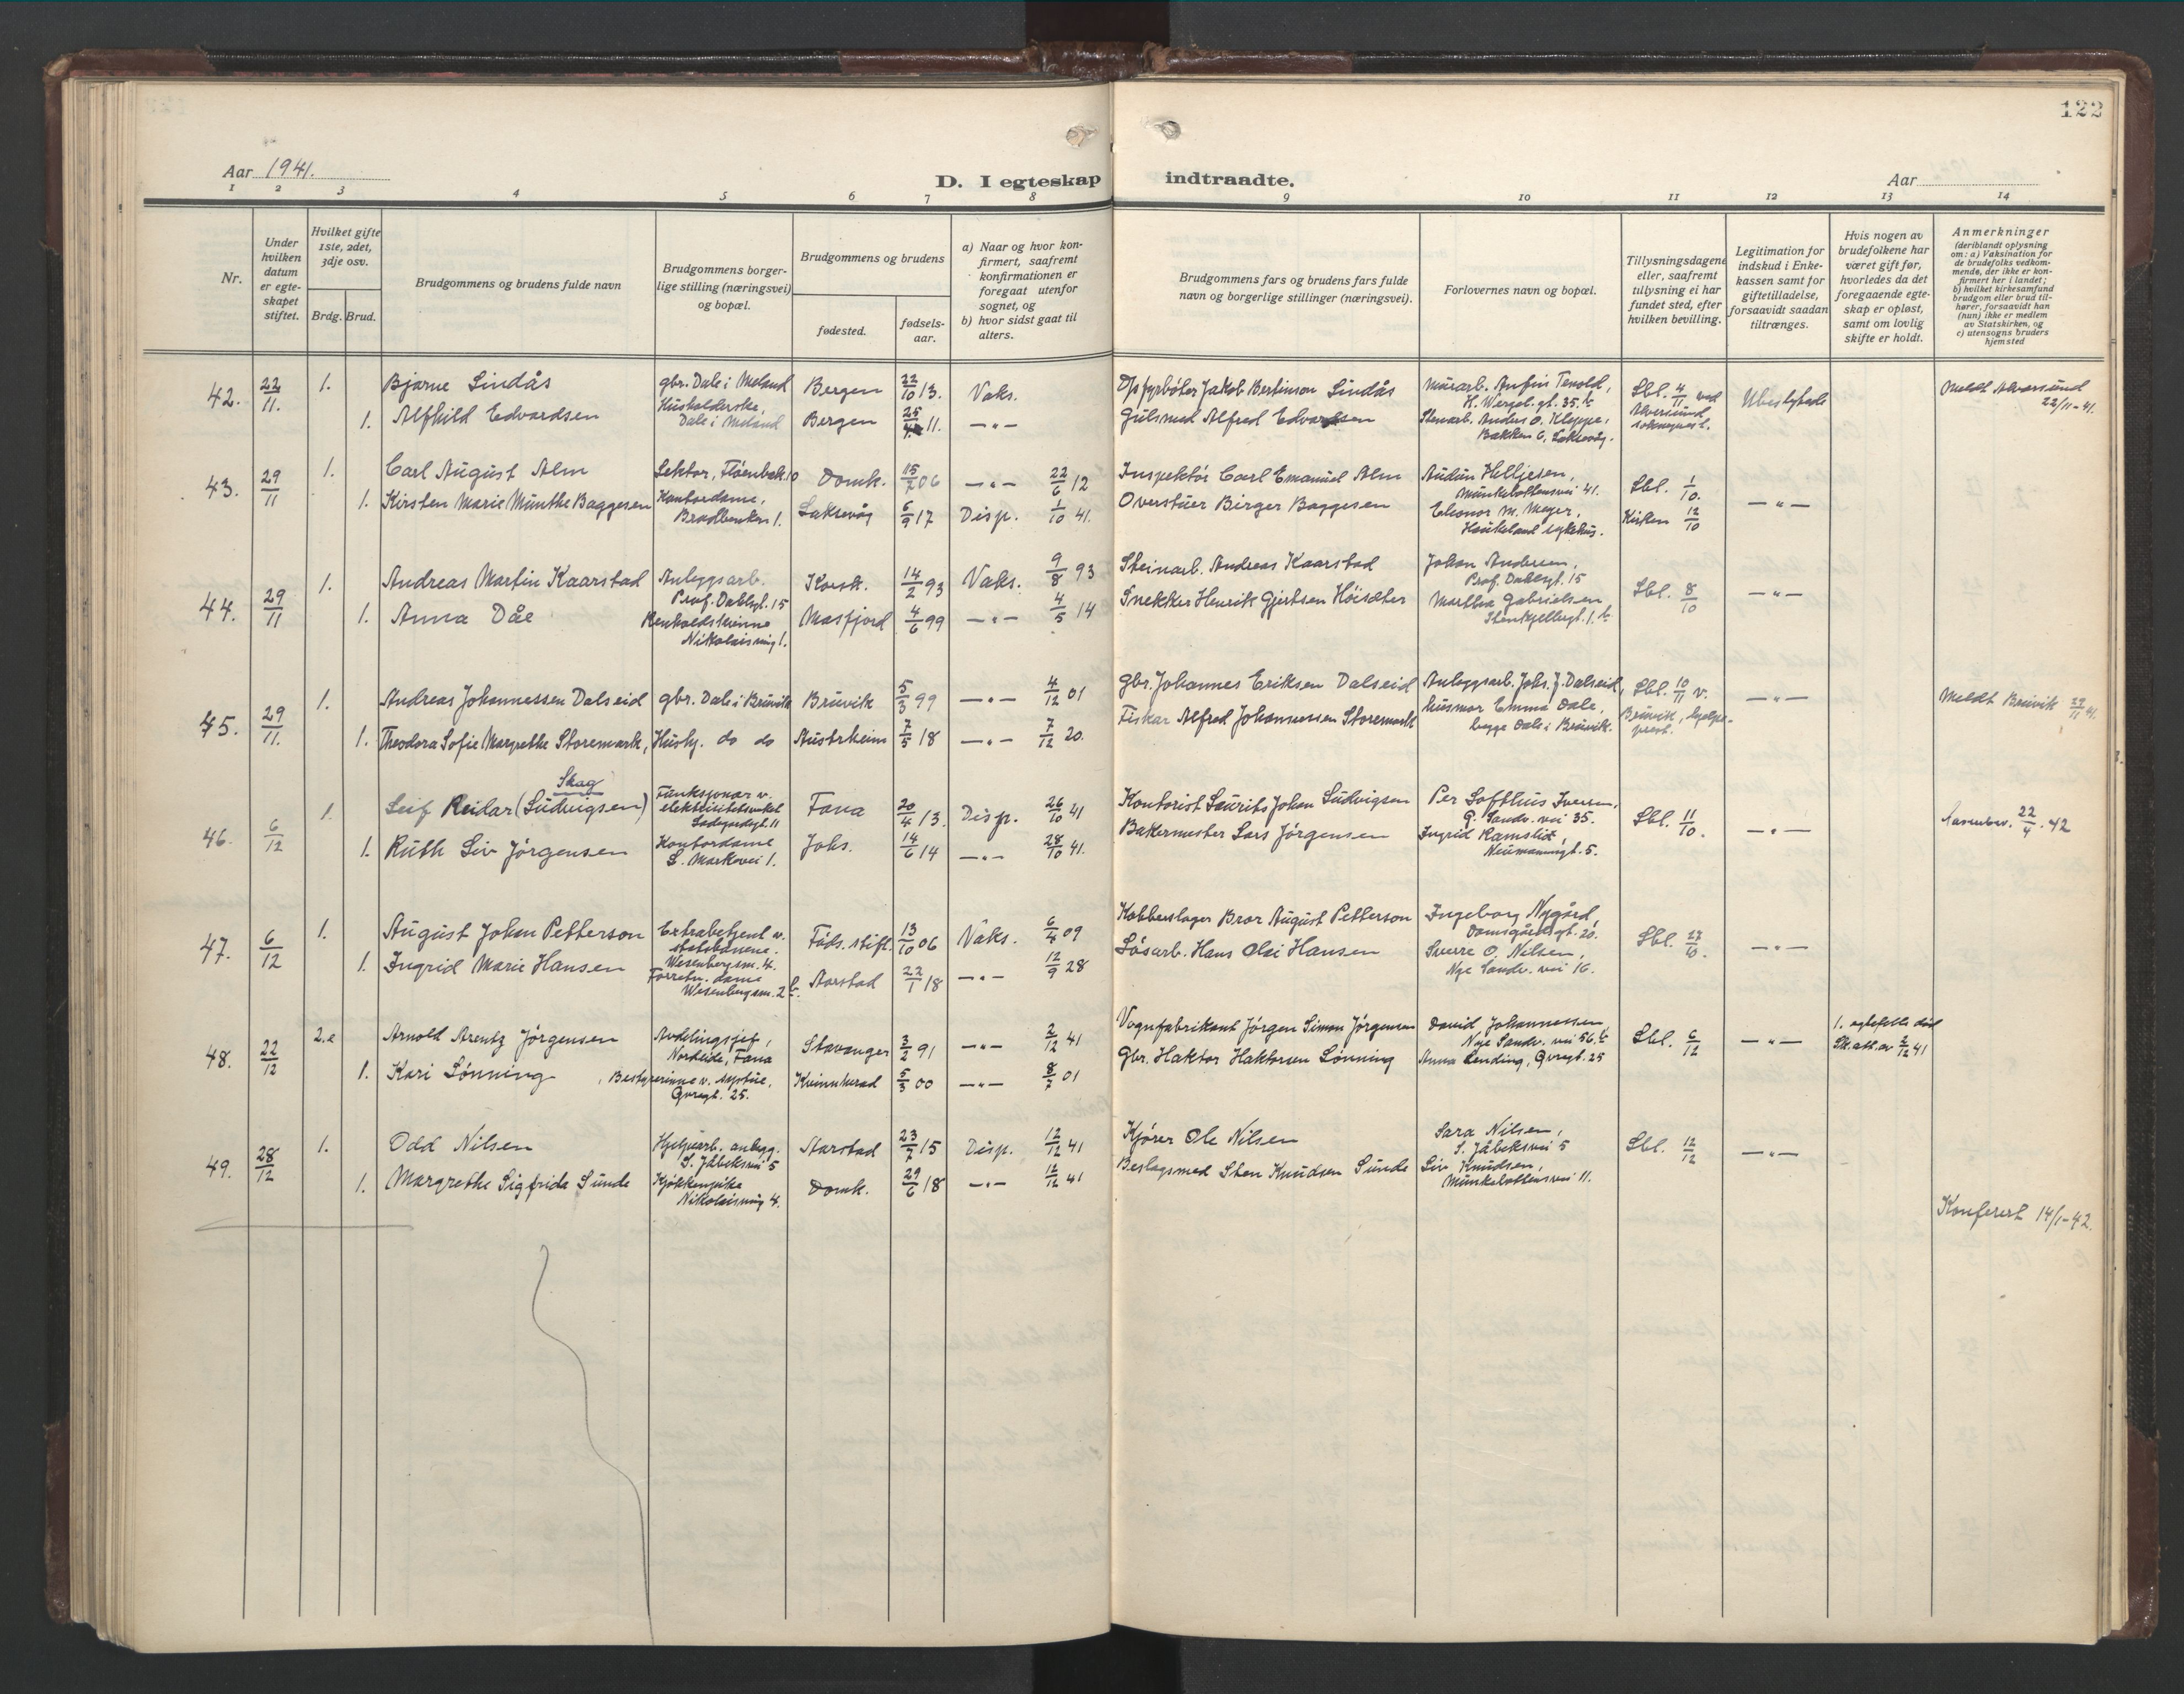 122
Aar 1941.
D. I egteskap indtraadte.
Aar
1 2 3 4 5 6 7 8 9 10 11 12 13 14
Nr.
Under hvilken datum er egteskapet stiftet.
Hvilket gifte 1ste, 2det, 3dje osv.
Brdg. Brud.
Brudgommens og brudens fulde navn
Brudgommens borgerlige stilling (næringsvei) og bopæl.
Brudgommens og brudens
fødested.
fødselsaar.
a) Naar og hvor konfirmert, saafremt konfirmationen er foregaat utenfor sognet, og
b) hvor sidst gaat til alters.
Brudgommens fars og brudens fars fulde navn og borgerlige stillinger (næringsvei).
Forlovernes navn og bopæl.
Tillysningsdagene eller, saafremt tillysning ei har fundet sted, efter hvilken bevilling.
Legitimation for indskud i Enkekassen samt for giftetilladelse, forsaavidt saadan tiltrænges.
Hvis nogen av brudefolkene har været gift før, hvorledes da det foregaaende egteskap er opløst, samt om lovlig skifte er holdt.
Anmerkninger
(deriblandt oplysning om: a) Vaksination for de brudefolks vedkommende, der ikke er konfirmert her i landet; b) hvilket kirkesamfund brudgom eller brud tilhører, forsaavidt han (hun) ikke er medlem av Statskirken, og c) utensogns bruders hjemsted
42. 22/11. 1. Bjarne Lindås gbr. Dale i Meland Bergen 22/10 13. Vaks. Jakob Bertinson Lindås Murarb. Anfin Tenold, H. Wergel. gt. 35. b Sbl. 4/11 ved Alversund Ubeskyttede Meldt Alversund 22/11-41.
1. Alfhild Edvardsen Husholderske, Dale i Meland Bergen 25/ 11. —"— Gulsmed Alfred Edvardsen Stenarb. Anders O. Kleppe, Bakken 6, Laksevåg.
43. 29/11 1. Carl August Alm Lektor, Fløenbak. 10 Domk. 15/7 06 —"— 22/6 12 Inspektør Carl Emanuel Alm Audun Helljesen, Munkebottensvei 41. Sbl. 1/10. —"—
1. Kirsten Marie Munthe Baggesen Kontordame, Bradbenken 1. Laksevåg 6/9 17 Disp. 1/10 41. Overstuer Birger Baggesen Eleonor M. Meyer, Haukeland sykehus. Kirken 12/10
44. 29/11 1. Andreas Martin Kaarstad Anleggsarb. Prof. Dahlsgt. 15 Korsk. 14/2 93 Vaks. 9/8 93 Steinarb. Andreas Kaarstad Johan Andersen, Prof. Dahlsgt. 15 Sbl. 8/10 —"—
1. Anna Dåe Renholdskvinne Nikolaismug 1. Masfjord 4/6 99 —"— 4/5 14 Snekker Henrik Gjertsen Høisæter Martha Gabrielsen Stenkjellergt. 1. b
45. 29/11. 1. Andreas Johannessen Dalseid gbr. Dale i Bruvik Bruvik 5/3 99 —"— 4/12 01 Gbr. Johannes Eriksen Dalseid Anleggsarb. Johs. J. Dalseid, Sbl. 10/11 v. Bruvik, hjelpeprest. —"— Meldt Bruvik 29/11 41.
1. Theodora Sofie Margrethe Storemark, Hush. do do Austrheim 7/5 18 —"— 7/12 20. Fisker Alfred Johannessen Storemark husmor Emma Dale, begge Dale i Bruvik.
46. 6/12 1. Leif Reidar (Ludvigsen) Skag Funksjonær v. elektrisitetsverket Ladegårdsgt. 11 Fana 20/4 13. Disp. 26/10 41 Kontorist Laurits Johan Ludvigsen Per Lofthus Iversen, G. Sandv. vei 35. Sbl. 11/10. —"— Navnebev. 22/4. 42
1. Ruth Liv Jørgensen Kontordame L. Markevei 1. Johs. 14/6 14 —"— 28/10 41. Bakermester Lars Jørgensen Ingrid Ramslid, Neumannsgt. 5.
47. 6/12 1. August Johan Petterson Extrabetjent v. statsbanene. Wesenbergsm. 4. Føds.stift. 13/10 06 Vaks. 6/4 09 Kobberslager Bror August Petterson Ingeborg Nygård, Damsgårdsgt. 20. Sbl. 27/10. —"—
1. Ingrid Marie Hansen Forretn. dame Wesenbergsm. 2 b. Aarstad 22/1 18 —"— 12/9 28 Løsarb. Hans Olai Hansen Sverre O. Nilsen, Nye Sandv. vei 16.
48. 22/12 2.e Arnold Arentz Jørgensen Avdelingssjef, Nordeide, Fana Stavanger 3/2 91 —"— 2/12 41 Vognfabrikant Jørgen Simon Jørgensen David Johannessen Nye Sandv. vei 56. b Sbl. 6/12 —"— 1. egtefelle død Sk.att. av 2/12 41
1. Kari Lønning Bestyrerinne v. systue, Øvregt. 25. Kvinnherad 5/3 00 —"— 8/7 01 Gbr. Haktor Haktorsen Lønning Anna Lending, Øvregt. 25
49. 28/12 1. Odd Nilsen Hjelpearb. anlegg. S. Jåbeksvei 5 Aarstad 23/7 15 Disp. 12/12 41 Kjører Ole Nilsen Sara Nilsen, S. Jåbeksvei 5 Sbl. 12/12 —"—
1. Margrethe Sigfrida Sunde Kjøkkenpike Nikolaismug 4. Domk. 29/6 18 —"— 12/12 41 Beslagsmed Sten Knudsen Sunde Liv Knudsen, Munkebottensvei 11.
Konferert 14/1-42.